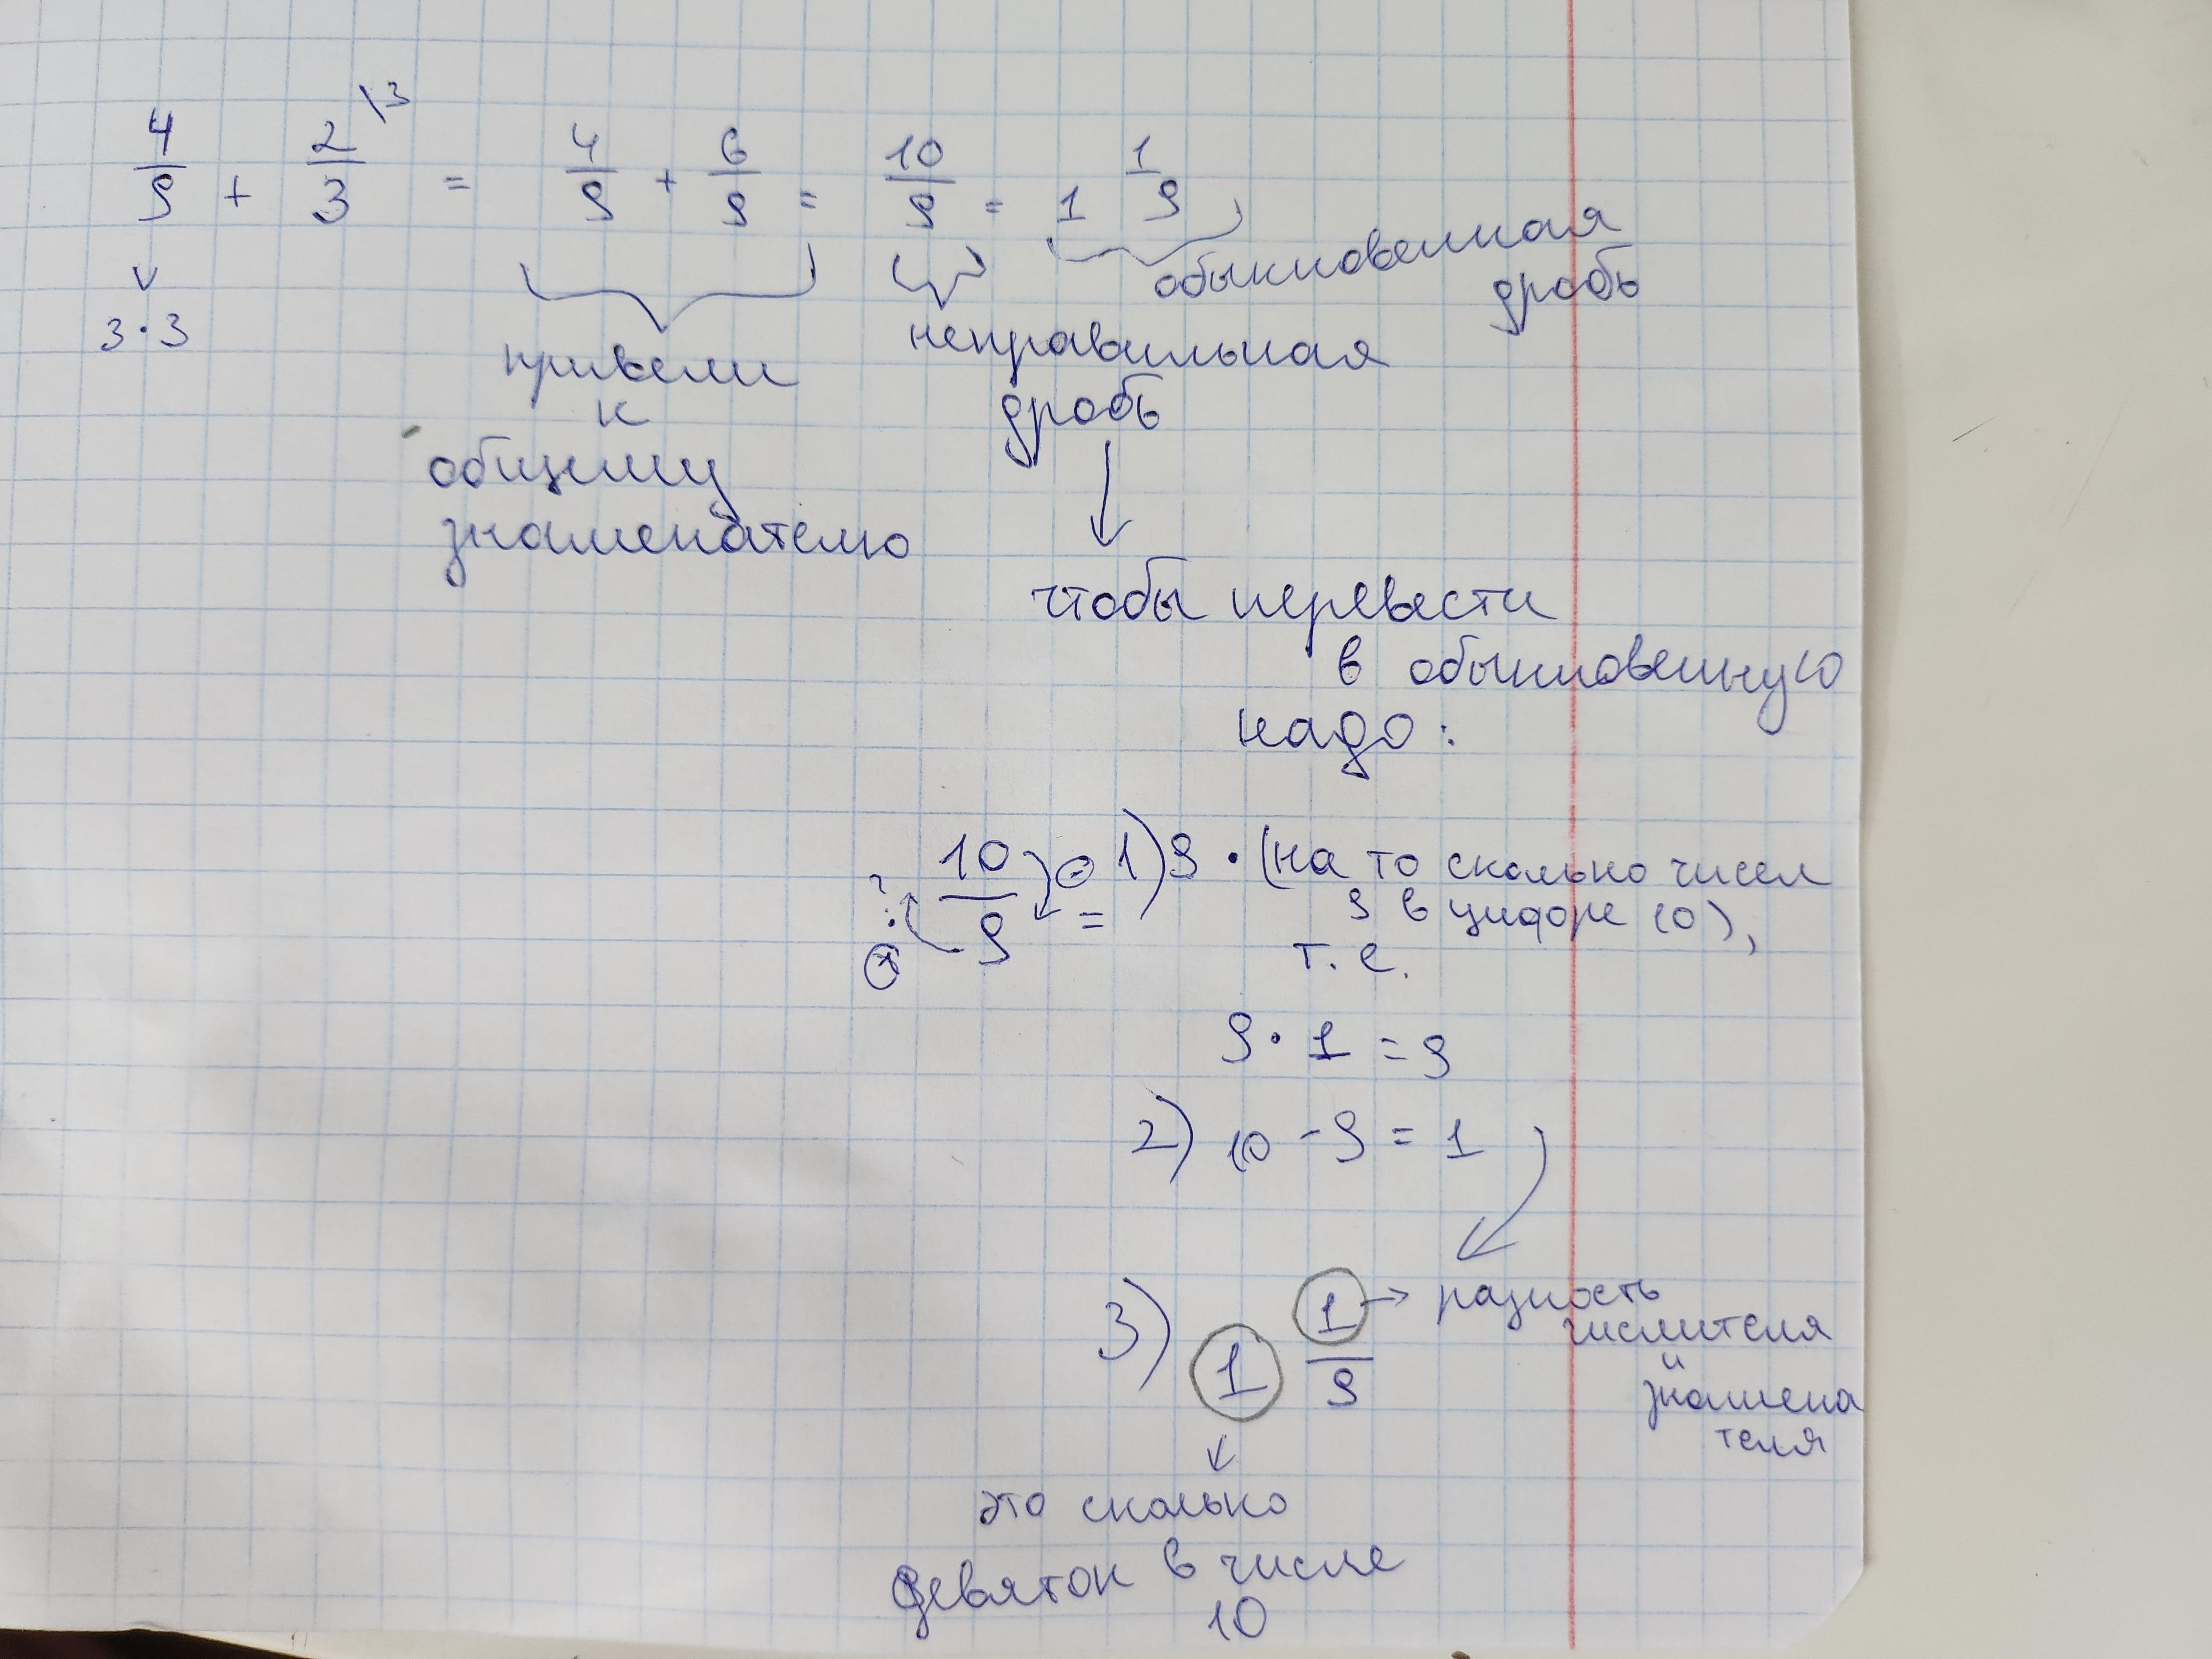 4/9 + 2/3 \3 = 4/9 + 6/9 = 10/9 = 1 1/9
3·3
обыкновенная
дробь
привели
к
общему
знаменателю
неправильная
дробь
чтобы перевести
в обыкновенную
надо:
10/9 = 1) 9 · (на то сколько чисел
9 в цифре 10),
т.е.
9 · 1 = 9
2) 10 - 9 = 1
3) 1 1/9
разность
числителя
и
знамена
теля
это сколько
девяток в числе
10